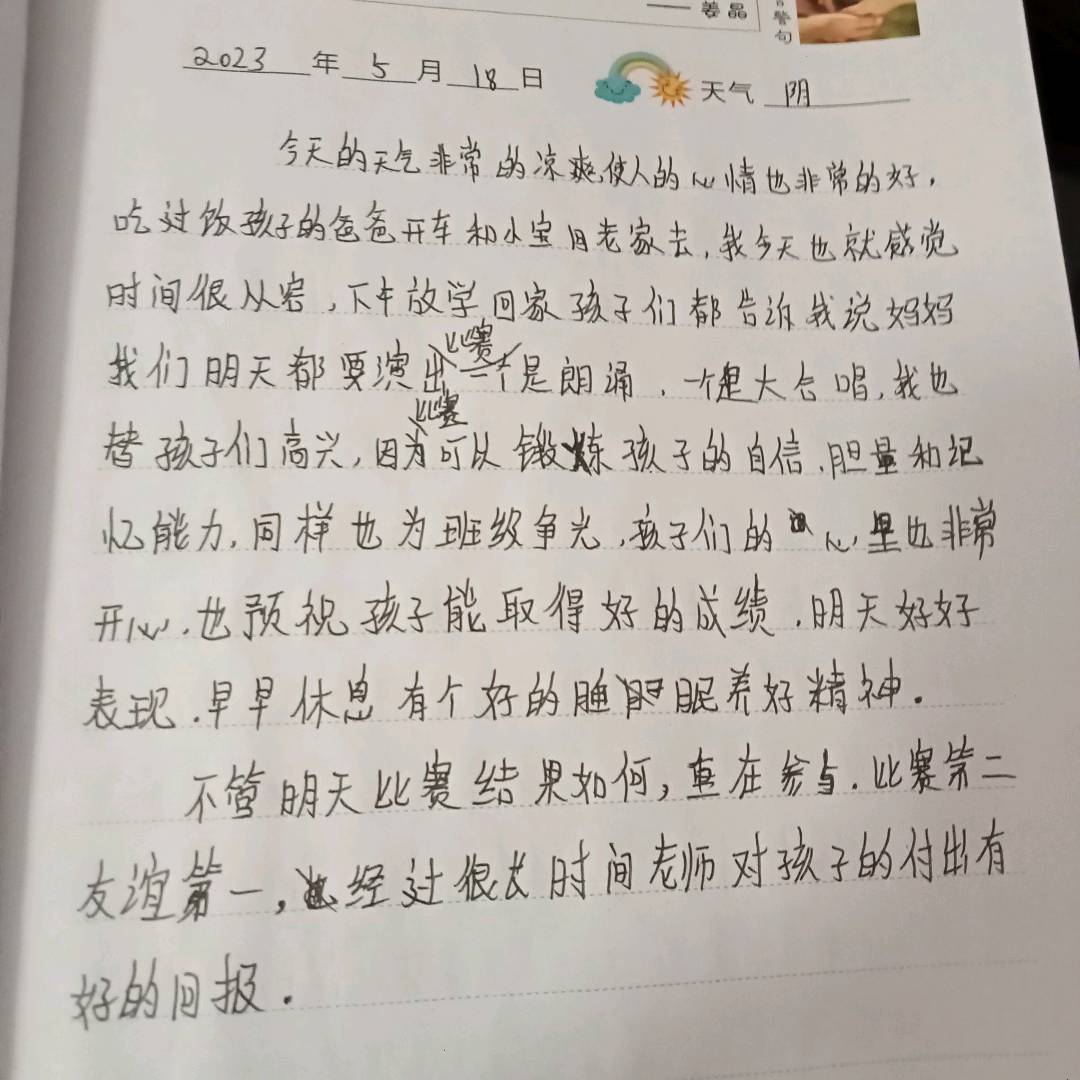 ——姜晶
警句
2023年5月18日 天气 阴
今天的天气非常的凉爽,使人的心情也非常的好,
吃过饭孩子的爸爸开车和小宝回老家去,我今天也就感觉
时间很从容,下午放学回家孩子们都告诉我说妈妈
比赛
我们明天都要演出一个是朗诵,一个是大合唱,我也
比赛
替孩子们高兴,因为可以锻炼孩子的自信、胆量和记
忆能力,同样也为班级争光,孩子们的心里也非常
开心,也预祝孩子能取得好的成绩,明天好好
表现.早早休息有个好的睡眠养好精神.
不管明天比赛结果如何,重在参与.比赛第二
友谊第一,经过很长时间老师对孩子的付出有
好的回报.